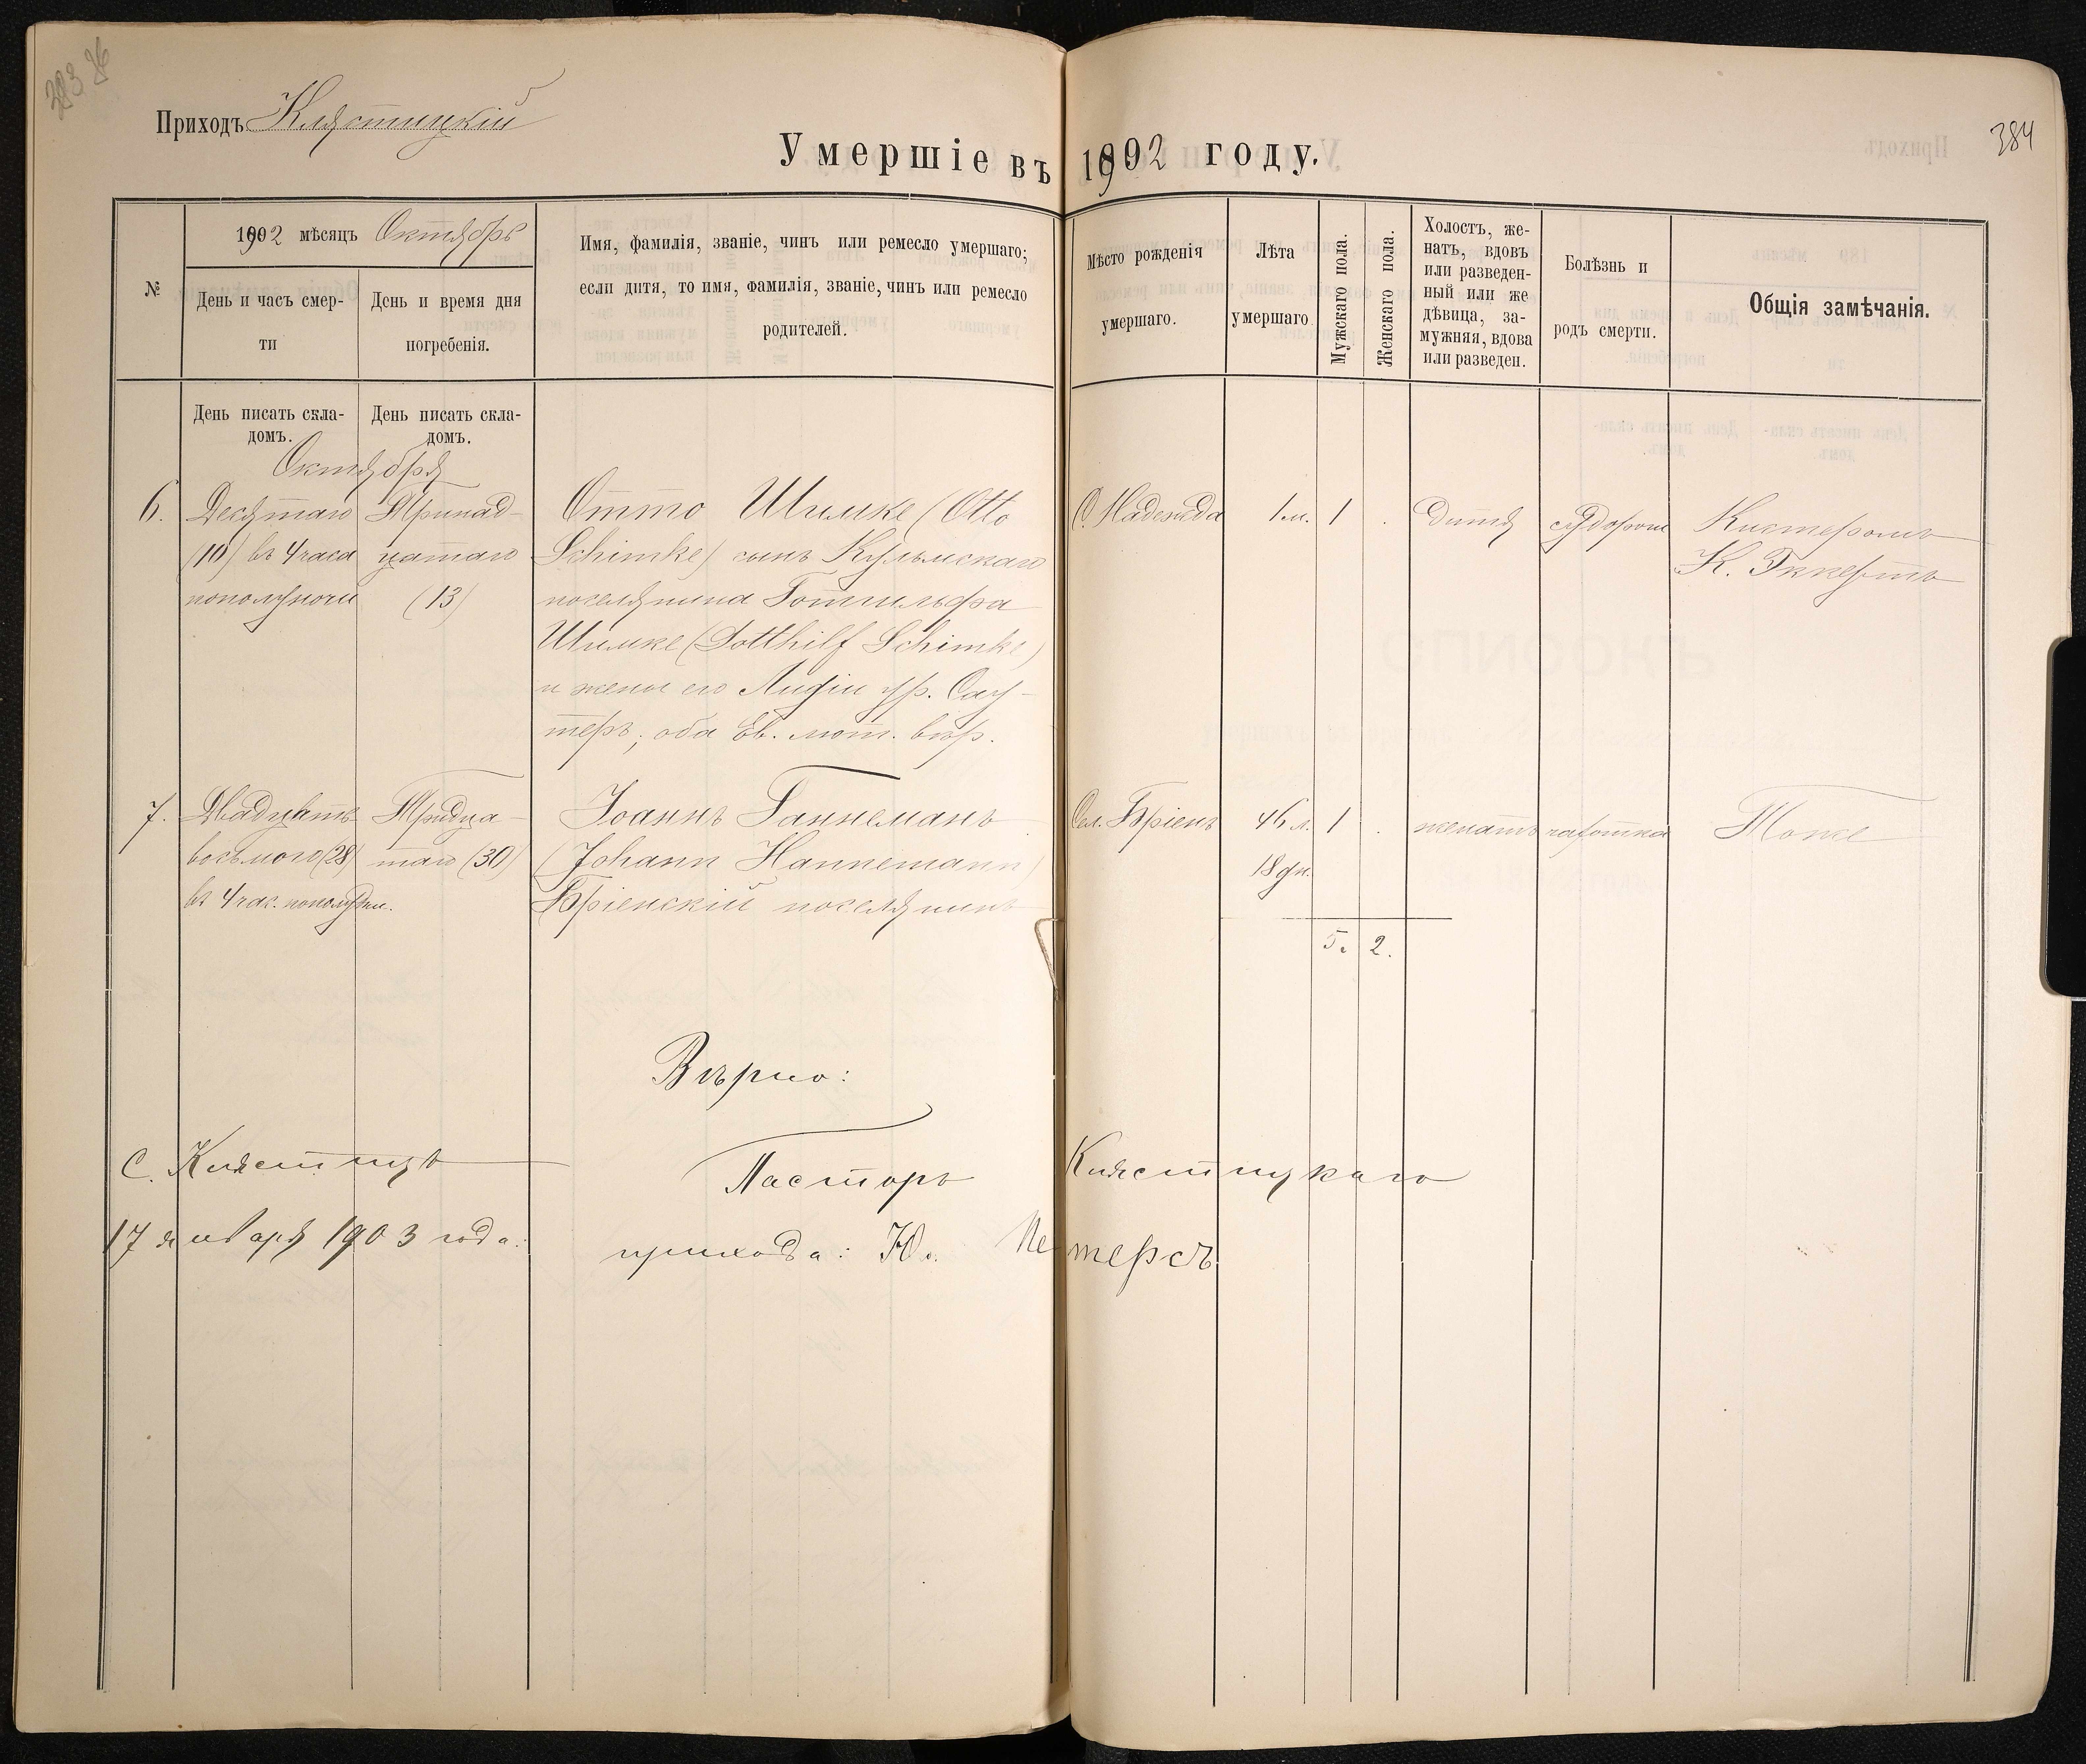 384
Приходъ Клястицкій
Умершіе въ 1902 году.
№
1902 мѣсяцъ Октябрь
День и часъ смер-
ти
День и время дня
погребенія.
Имя, фамилія, званіе, чинъ или ремесло умершаго;
если дитя, то имя, фамилія, званіе, чинъ или ремесло
родителей.
Мѣсто рожденія
умершаго.
Лѣта
умершаго
Мужскаго пола.
Женскаго пола.
Холостъ, же-
натъ, вдовъ
или разведен-
ный или же
дѣвица, за-
мужняя, вдова
или разведен.
Болѣзнь и
родъ смерти.
Общія замѣчанія.
День писать скла-
домъ.
День писать скла-
домъ.
Октября
6.
Десятаго
(10) въ 4 часа
пополуночи
Тринад-
цатаго
(13)
Отто Шимке (Otto
Schimke) сынъ Кульмскаго
поселянина Готгильфа
Шимке (Gotthilf Schimke)
и жены его Лидіи ур. Сау-
теръ, оба Ев. лют. вѣр.
С. Надежда
1 м.
1
.
дитя
судороги
Кистеромъ
К. Эккертъ
7.
Двадцать
восьмого (28)
въ 4 час. пополудни.
Тридца-
таго (30)
Іоаннъ Ганнеманъ
(Johann Hannemann)
Бріенскій поселянинъ
Сел. Бріенъ
46 л.
18 дн.
1
.
женатъ
чахотка
Тоже
5. 2.
Вѣрно:
С. Клястицъ
17 января 1903 года.
Пасторъ Клястицкаго
прихода: Ю. Петерсъ